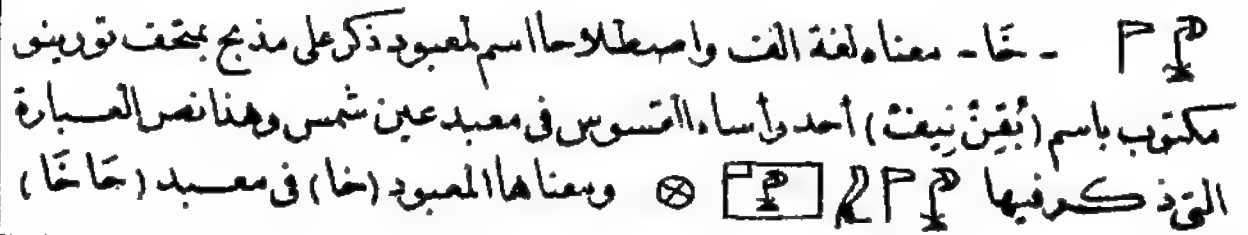 - خَا - معناه لغة ألف واصطلاحا اسم لمعبود ذكر على مذبح بمتحف تورينو
مكتوب باسم (بُقِنْ نِيفْ) أحد رأساء القسوس فى معبد عين شمس وهذا نص العبارة
التى ذكر فيها ومعناها المعبود (خا) فى معبد (حَاخَا)